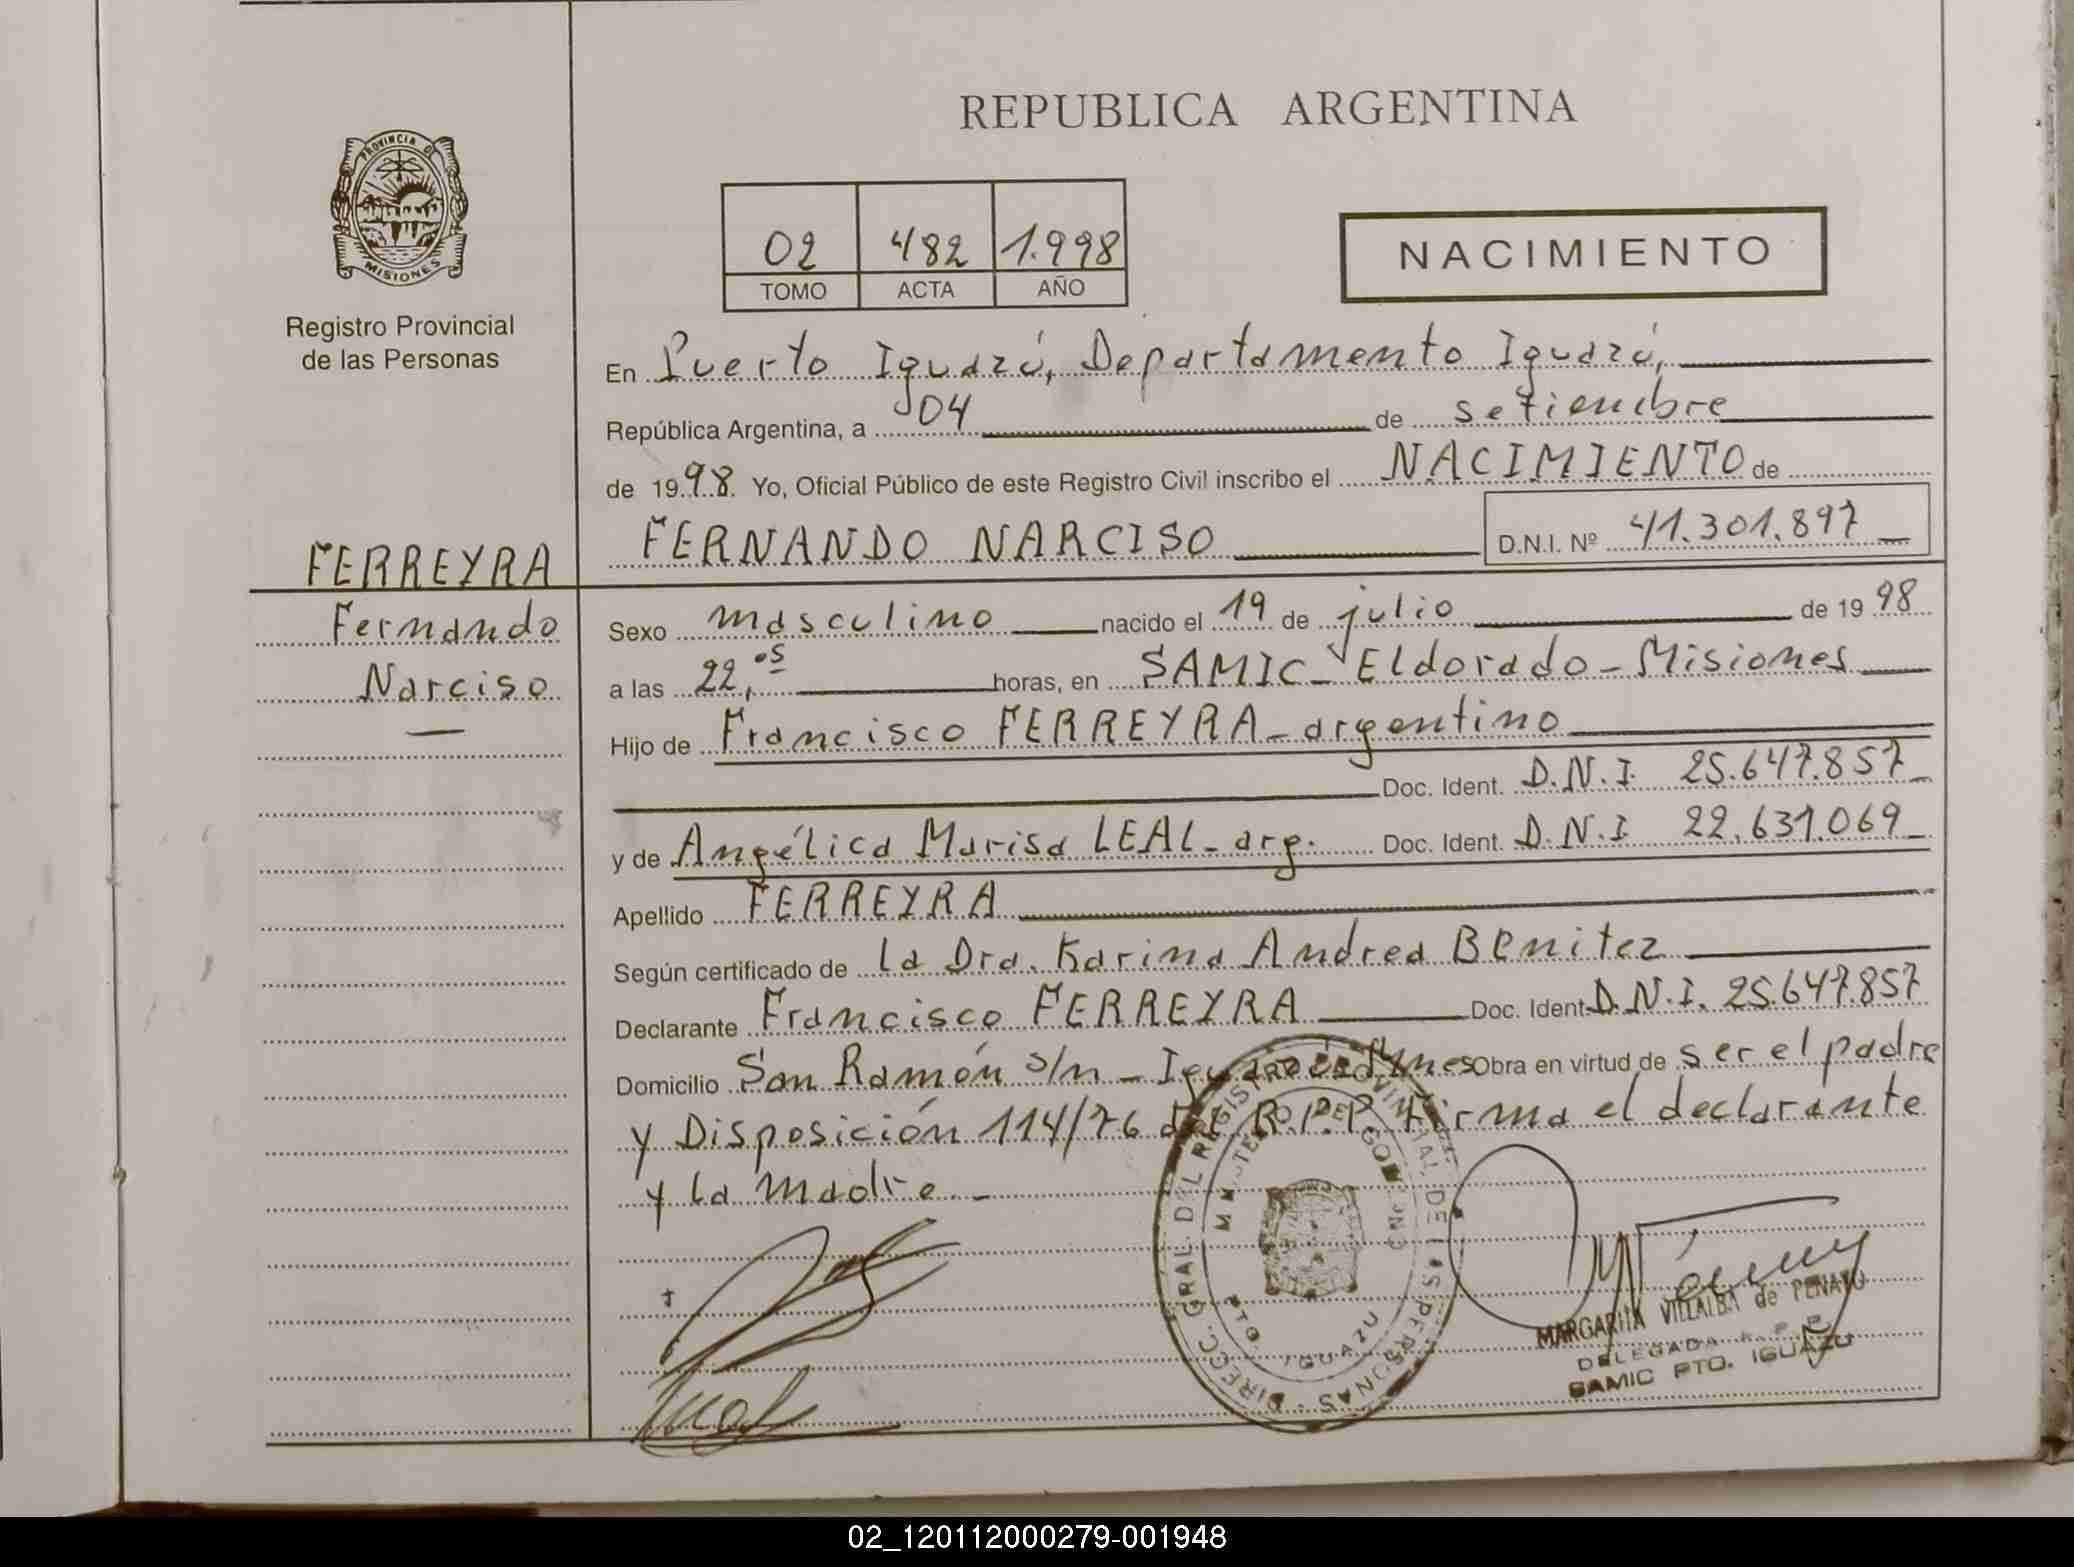 REPUBLICA ARGENTINA
PROVINCIA DE
MISIONES
Registro Provincial
de las Personas
02 482 1.998
TOMO ACTA AÑO
NACIMIENTO
En Puerto Iguazú, Departamento Iguazú,
República Argentina, a 04 de setiembre
de 1998. Yo, Oficial Público de este Registro Civil inscribo el NACIMIENTO de
FERNANDO NARCISO D.N.I. Nº 41.301.897
FERREYRA
Fernando
Narciso
Sexo masculino nacido el 19 de julio de 1998
a las 22,05 horas, en SAMIC - Eldorado - Misiones
Hijo de Francisco FERREYRA - argentino
Doc. Ident. D.N.I. 25.647.857
y de Angélica Marisa LEAL - arg. Doc. Ident. D.N.I 22.631.069
Apellido FERREYRA
Según certificado de la Dra. Karina Andrea BENitez
Declarante Francisco FERREYRA Doc. Ident. D.N.I. 25.647.857
Domicilio San Ramón s/n - Iguazú - Mnes Obra en virtud de ser el padre
y Disposición 114/76 del R.P.P. Firma el declarante
y la madre -
DIRECC. GRAL. DEL REGISTRO PROVINCIAL DE LAS PERSONAS
MINISTERIO DE GOBIERNO
PTO. IGUAZU
MARGARITA VILLALBA de PENAYO
DELEGADA R. P. P.
SAMIC PTO. IGUAZU
02_120112000279-001948